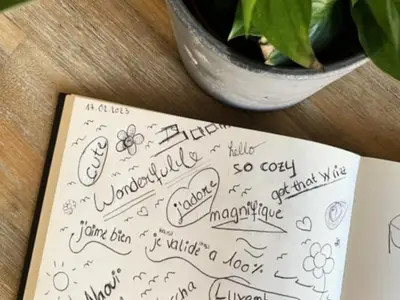 17.02.2023
cute
Wonderfull
hello
so cozy
get that Wine
j'adore
magnifique
j'aime bien
je valide à 100%
Ahoui